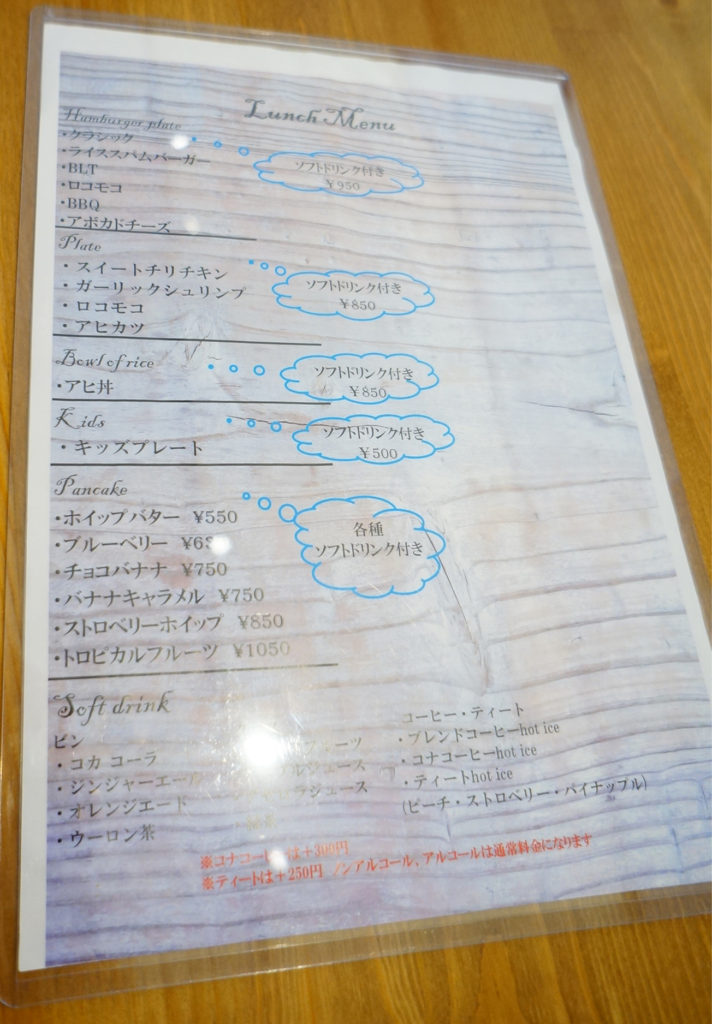 Lunch Menu
Hamburger plate
・クラシック
・ライススパムバーガー
・BLT
・ロコモコ
・BBQ
・アボカドチーズ
ソフトドリンク付き
￥950
Plate
・スイートチリチキン
・ガーリックシュリンプ
・ロコモコ
・アヒカツ
ソフトドリンク付き
￥850
Bowl of rice
・アヒ丼
ソフトドリンク付き
￥850
Kids
・キッズプレート
ソフトドリンク付き
￥500
Pancake
・ホイップバター ￥550
・ブルーベリー
・チョコバナナ ￥750
・バナナキャラメル ￥750
・ストロベリーホイップ ￥850
・トロピカルフルーツ ￥1050
各種
ソフトドリンク付き
Soft drink
ビン
・コカ コーラ
・ジンジャーエール
・オレンジエード
・ウーロン茶
コーヒー・ティート
・ブレンドコーヒーhot ice
・コナコーヒーhot ice
・ティートhot ice
(ピーチ・ストロベリー・パイナップル)
は＋300円
※ティートは＋250円 ノンアルコール、アルコールは通常料金になります